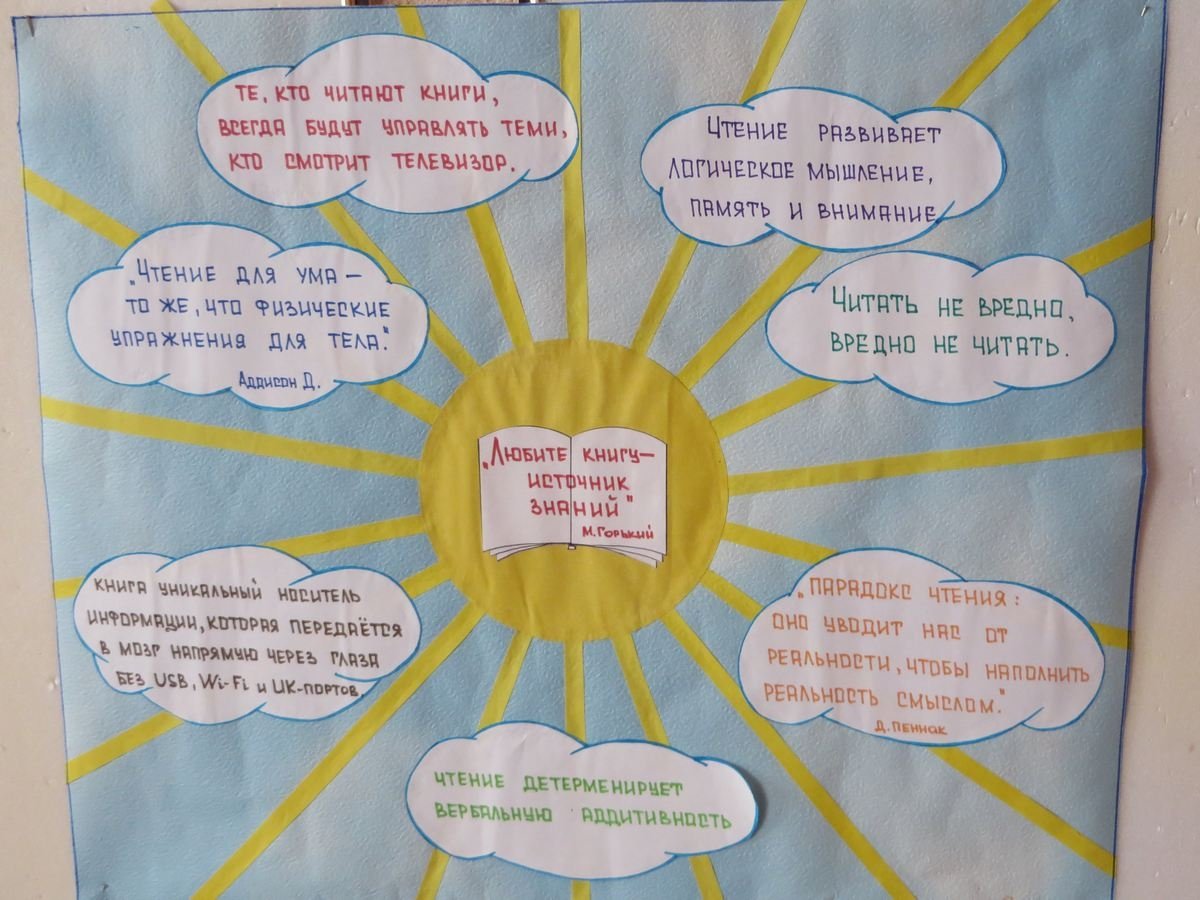 ТЕ, КТО ЧИТАЮТ КНИГИ,
ВСЕГДА БУДУТ УПРАВЛЯТЬ ТЕМИ,
КТО СМОТРИТ ТЕЛЕВИЗОР.
ЧТЕНИЕ РАЗВИВАЕТ
ЛОГИЧЕСКОЕ МЫШЛЕНИЕ,
ПАМЯТЬ И ВНИМАНИЕ.
„ЧТЕНИЕ ДЛЯ УМА —
ТО ЖЕ, ЧТО ФИЗИЧЕСКИЕ
УПРАЖНЕНИЯ ДЛЯ ТЕЛА."
АДДИСОН Д.
ЧИТАТЬ НЕ ВРЕДНО,
ВРЕДНО НЕ ЧИТАТЬ.
„ЛЮБИТЕ КНИГУ—
ИСТОЧНИК
ЗНАНИЙ"
М.ГОРЬКИЙ
КНИГА УНИКАЛЬНЫЙ НОСИТЕЛЬ
ИНФОРМАЦИИ, КОТОРАЯ ПЕРЕДАЁТСЯ
В МОЗГ НАПРЯМУЮ ЧЕРЕЗ ГЛАЗА
БЕЗ USB, Wi-Fi и ИК-ПОРТОВ.
„ПАРАДОКС ЧТЕНИЯ:
ОНО УВОДИТ НАС ОТ
РЕАЛЬНОСТИ, ЧТОБЫ НАПОЛНИТЬ
РЕАЛЬНОСТЬ СМЫСЛОМ."
Д.ПЕННАК
ЧТЕНИЕ ДЕТЕРМЕНИРУЕТ
ВЕРБАЛЬНУЮ АДДИТИВНОСТЬ